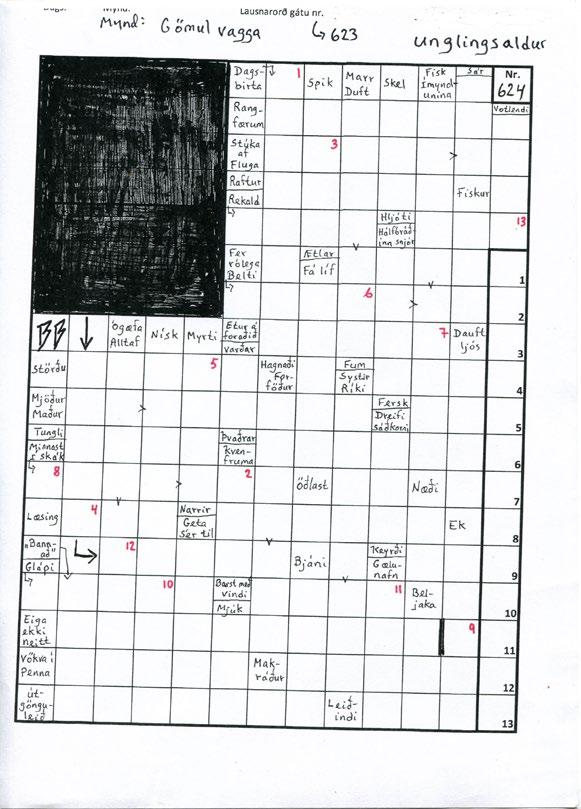 Lausnarorð gátu nr.
Mynd: Gömul vagga
↳ 623
unglingsaldur
Nr.
624
Votlendi
Dags-
birta
1
Spik
Marr
Duft
Skel
Fisk
Ímynd-
unina
Sár
Rang-
færum
Stýka
af
Fluga
3
Raftur
Rekald
Fiskur
Hljóti
Hálfbráð-
inn snjór
13
Fer
rólega
Belti
Ætlar
Fá líf
1
6
2
BB
Ógæfa
Alltaf
Nísk
Myrti
Etur á
foraðið
Varðar
7
Dauft
ljós
3
Störðu
5
Hagnaði
For-
föður
Fum
Systir
Ríki
4
Mjöður
Maður
Fersk
Dreifi
sáðkorni
5
Tungli
Minnast
í skák
Þvaðrar
Kven-
fruma
6
8
2
Öðlast
Næði
7
Læsing
4
Narrir
Geta
sér til
Ek
8
„Bann-
að"
Glápi
12
Bjáni
Keyrði
Gælu-
nafn
9
10
Barst með
vindi
Mjúk
11
Bel-
jaka
10
Eiga
ekki
neitt
9
11
Vökva í
Penna
Mak-
ráður
12
Út-
göngu-
leið
Leið-
indi
13